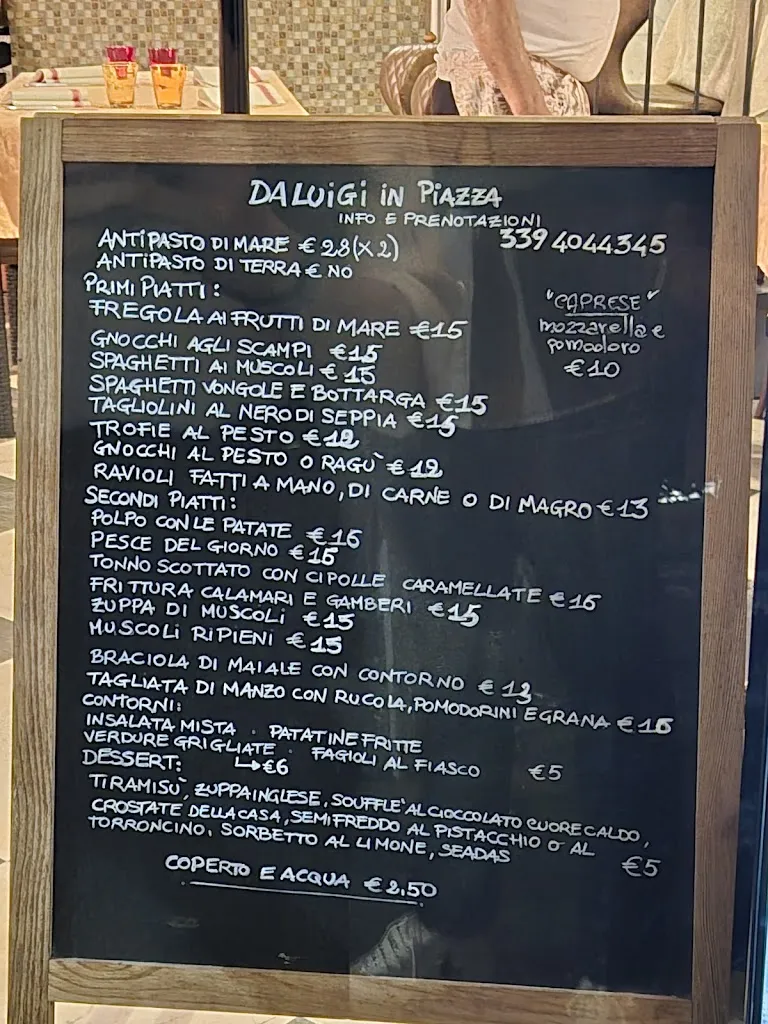 DA LUIGI IN PIAZZA
INFO E PRENOTAZIONI
339 4044345
ANTIPASTO DI MARE € 28 (x2)
ANTIPASTO DI TERRA € NO
"CAPRESE"
mozzarella e
pomodoro
€10
PRIMI PIATTI:
FREGOLA AI FRUTTI DI MARE €15
GNOCCHI AGLI SCAMPI €15
SPAGHETTI AI MUSCOLI €15
SPAGHETTI VONGOLE E BOTTARGA €15
TAGLIOLINI AL NERO DI SEPPIA €15
TROFIE AL PESTO €12
GNOCCHI AL PESTO O RAGÙ €12
RAVIOLI FATTI A MANO, DI CARNE O DI MAGRO €13
SECONDI PIATTI:
POLPO CON LE PATATE €16
PESCE DEL GIORNO €15
TONNO SCOTTATO CON CIPOLLE CARAMELLATE €15
FRITTURA CALAMARI E GAMBERI €15
ZUPPA DI MUSCOLI €15
MUSCOLI RIPIENI €15
BRACIOLA DI MAIALE CON CONTORNO €13
TAGLIATA DI MANZO CON RUCOLA, POMODORINI E GRANA €16
CONTORNI:
INSALATA MISTA · PATATINE FRITTE
VERDURE GRIGLIATE · FAGIOLI AL FIASCO €5
↳€6
DESSERT:
TIRAMISÙ, ZUPPA INGLESE, SOUFFLE' AL CIOCCOLATO CUORE CALDO,
CROSTATE DELLA CASA, SEMIFREDDO AL PISTACCHIO O AL
TORRONCINO. SORBETTO AL LIMONE, SEADAS €5
COPERTO E ACQUA €2,50